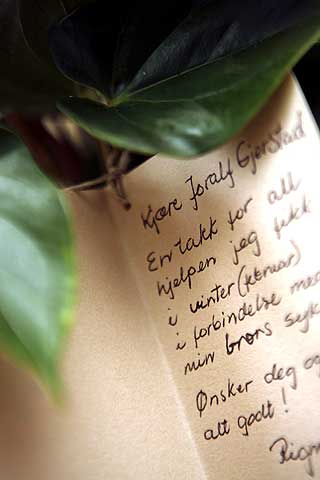 Kjære Joralf Gjerstad
En takk for all
hjelpen jeg fikk
i vinter (februar)
i forbindelse med
min brors syk
Ønsker deg og
alt godt!
Rigm